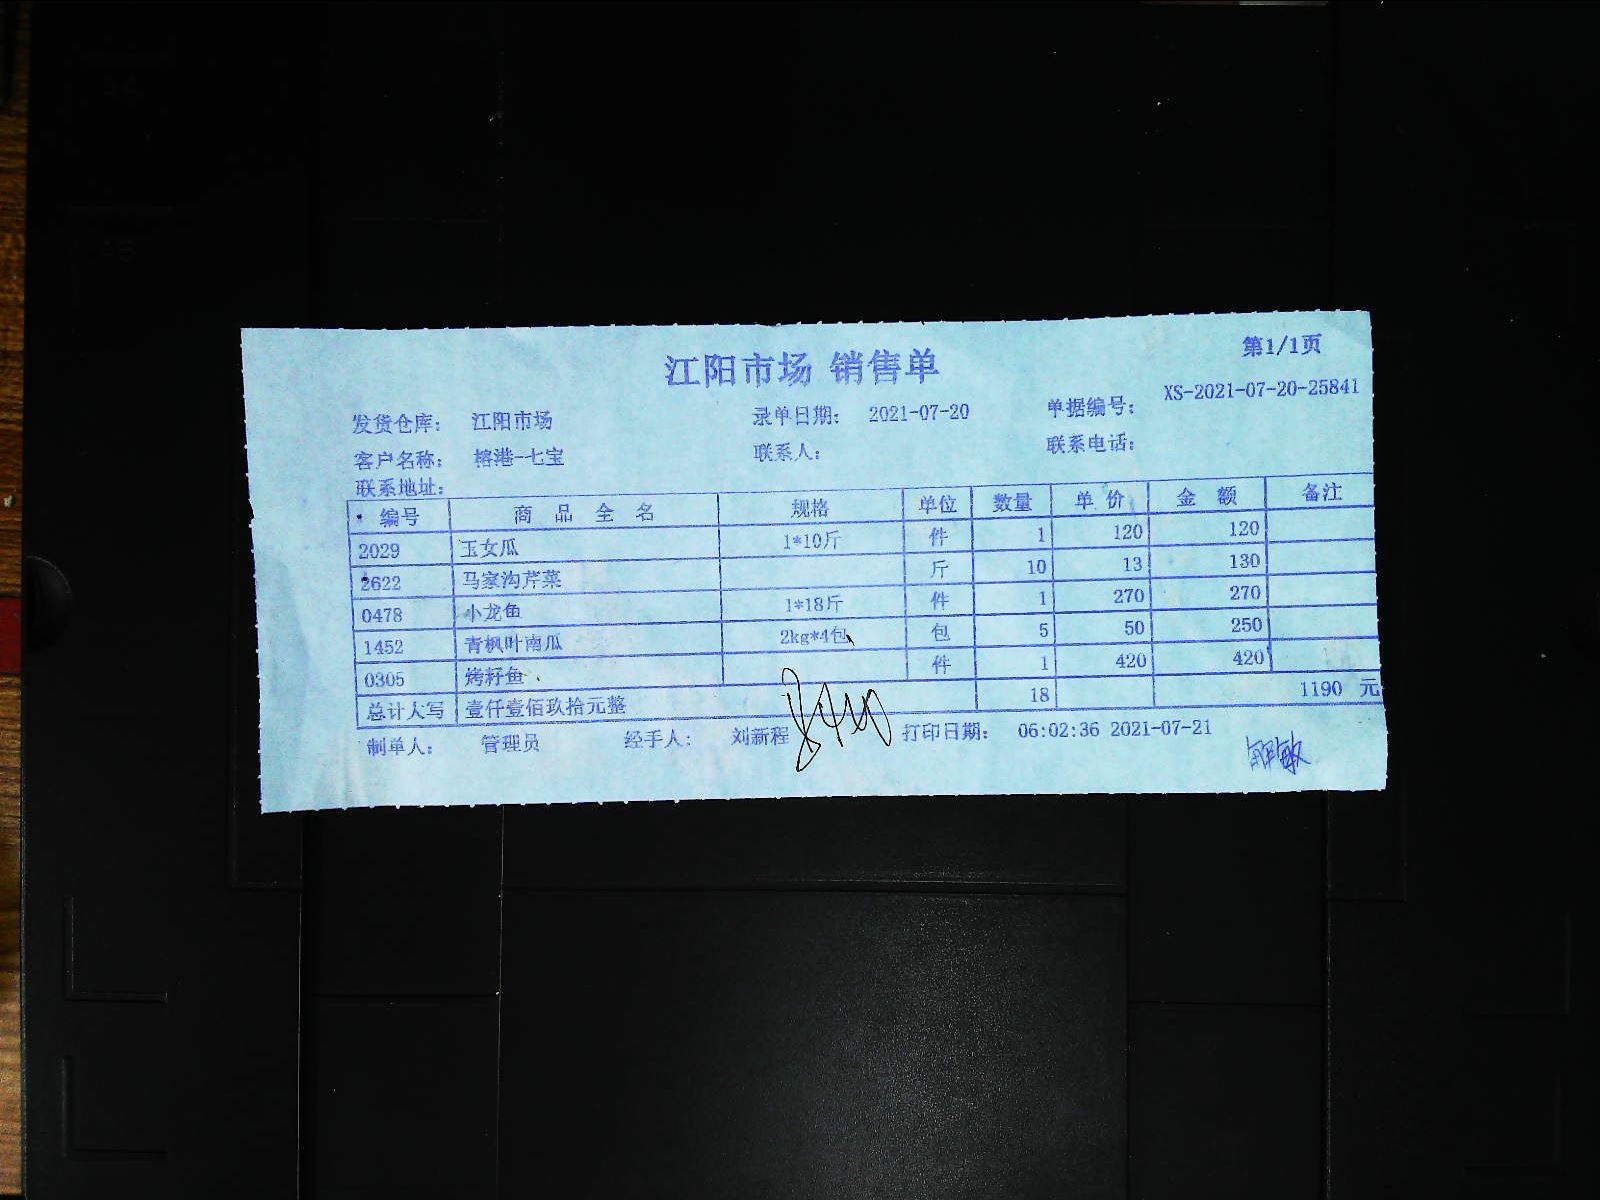 江阳市场 销售单
第1/1页
发货仓库: 江阳市场 录单日期: 2021-07-20 单据编号: XS-2021-07-20-25841
客户名称: 榕港-七宝 联系人: 联系电话:
联系地址:
编号 商品全名 规格 单位 数量 单价 金额 备注
2029 玉女瓜 1*10斤 件 1 120 120
2622 马家沟芹菜 斤 10 13 130
0478 小龙鱼 1*18斤 件 1 270 270
1452 青枫叶南瓜 2kg*4包 包 5 50 250
0305 烤籽鱼 件 1 420 420
总计大写 壹仟壹佰玖拾元整 18 1190 元
制单人: 管理员 经手人: 刘新程 打印日期: 06:02:36 2021-07-21